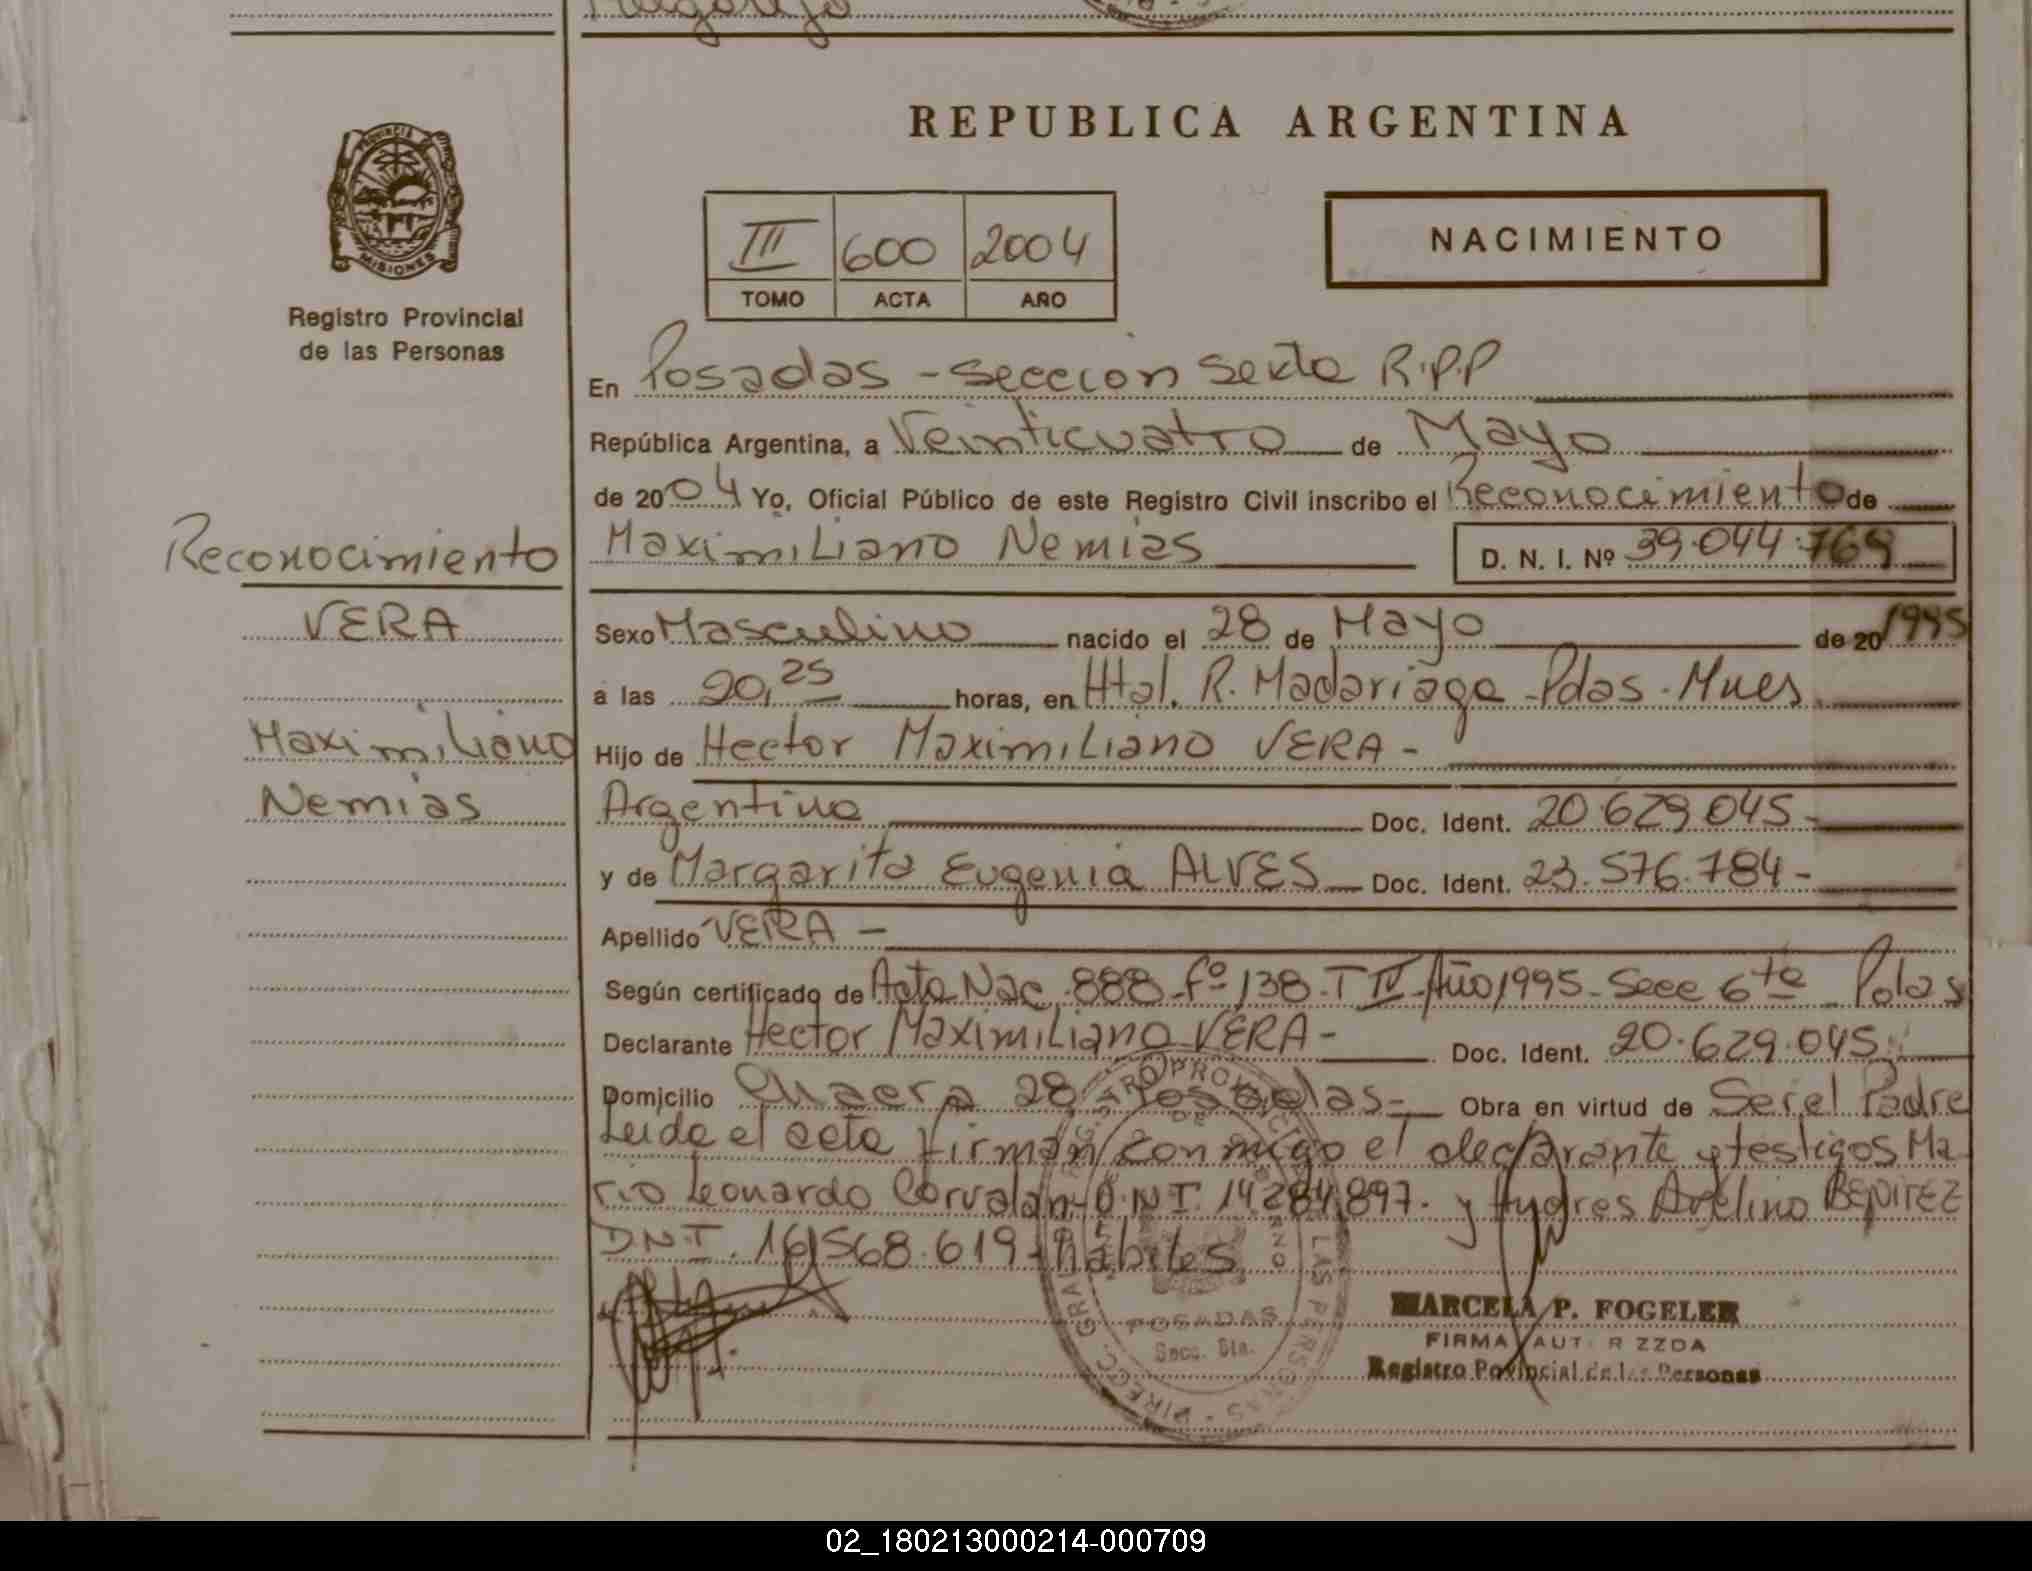 REPUBLICA ARGENTINA
PROVINCIA
MISIONES
Registro Provincial
de las Personas
III 600 2004
TOMO ACTA AÑO
NACIMIENTO
En Posadas - seccion sexta R.P.P
República Argentina, a Veinticuatro de Mayo
de 2004 Yo, Oficial Público de este Registro Civil inscribo el Reconocimiento de
Maximiliano Nemias D. N. I. Nº 39.044.769
Reconocimiento
VERA
Maximiliano
Nemias
Sexo Masculino nacido el 28 de Mayo de 20 1995
a las 20,25 horas, en Htal. R. Madariaga - Pdas - Mnes
Hijo de Hector Maximiliano VERA -
Argentino Doc. Ident. 20.629.045 -
y de Margarita Eugenia ALVES Doc. Ident. 23.576.784 -
Apellido VERA -
Según certificado de Acta Nac. 888 - fº 138 - T IV - Año 1995 - Secc 6ta Pdas
Declarante Hector Maximiliano VERA - Doc. Ident. 20.629.045
Domicilio Chacra 28 Posadas - Obra en virtud de Ser el Padre
Leida el acta firman conmigo el declarante y testigos Ma
rio Leonardo Corvalan - D.N.I. 14.284.897. y Andres Avelino BENITEZ
D.N.I. 16.568.619 - habiles
POSADAS
Secc. 6ta.
MARCELA P. FOGELER
FIRMA AUTORIZADA
Registro Provincial de las Personas
02_180213000214-000709